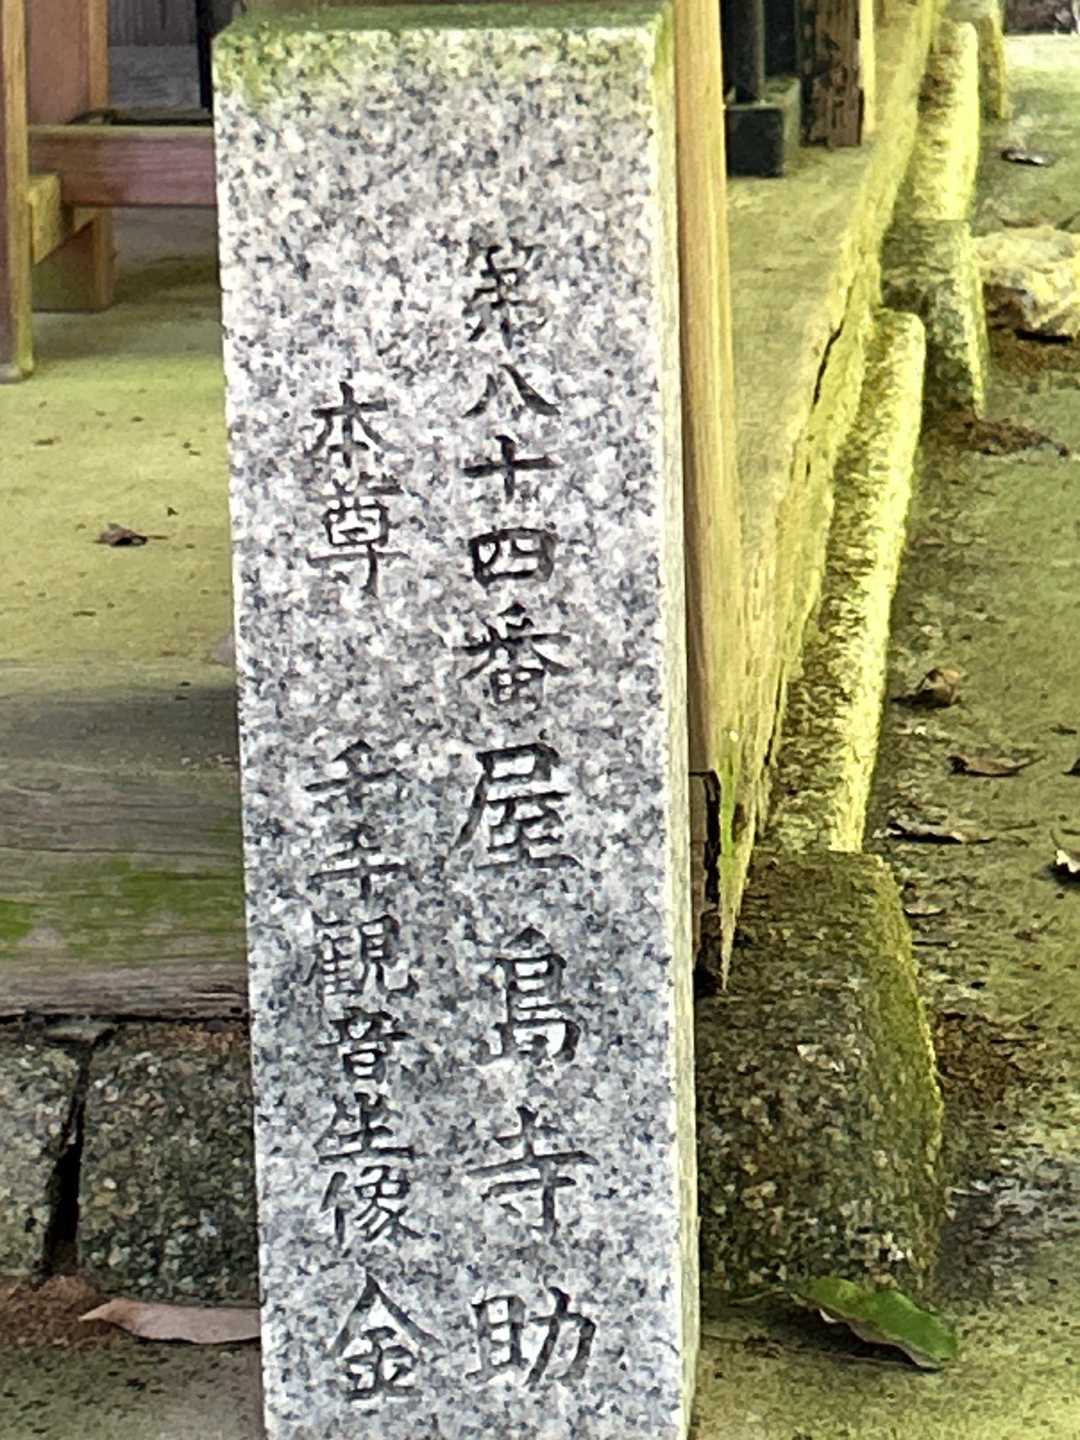 第八十四番屋島寺助
本尊 千手觀音坐像金